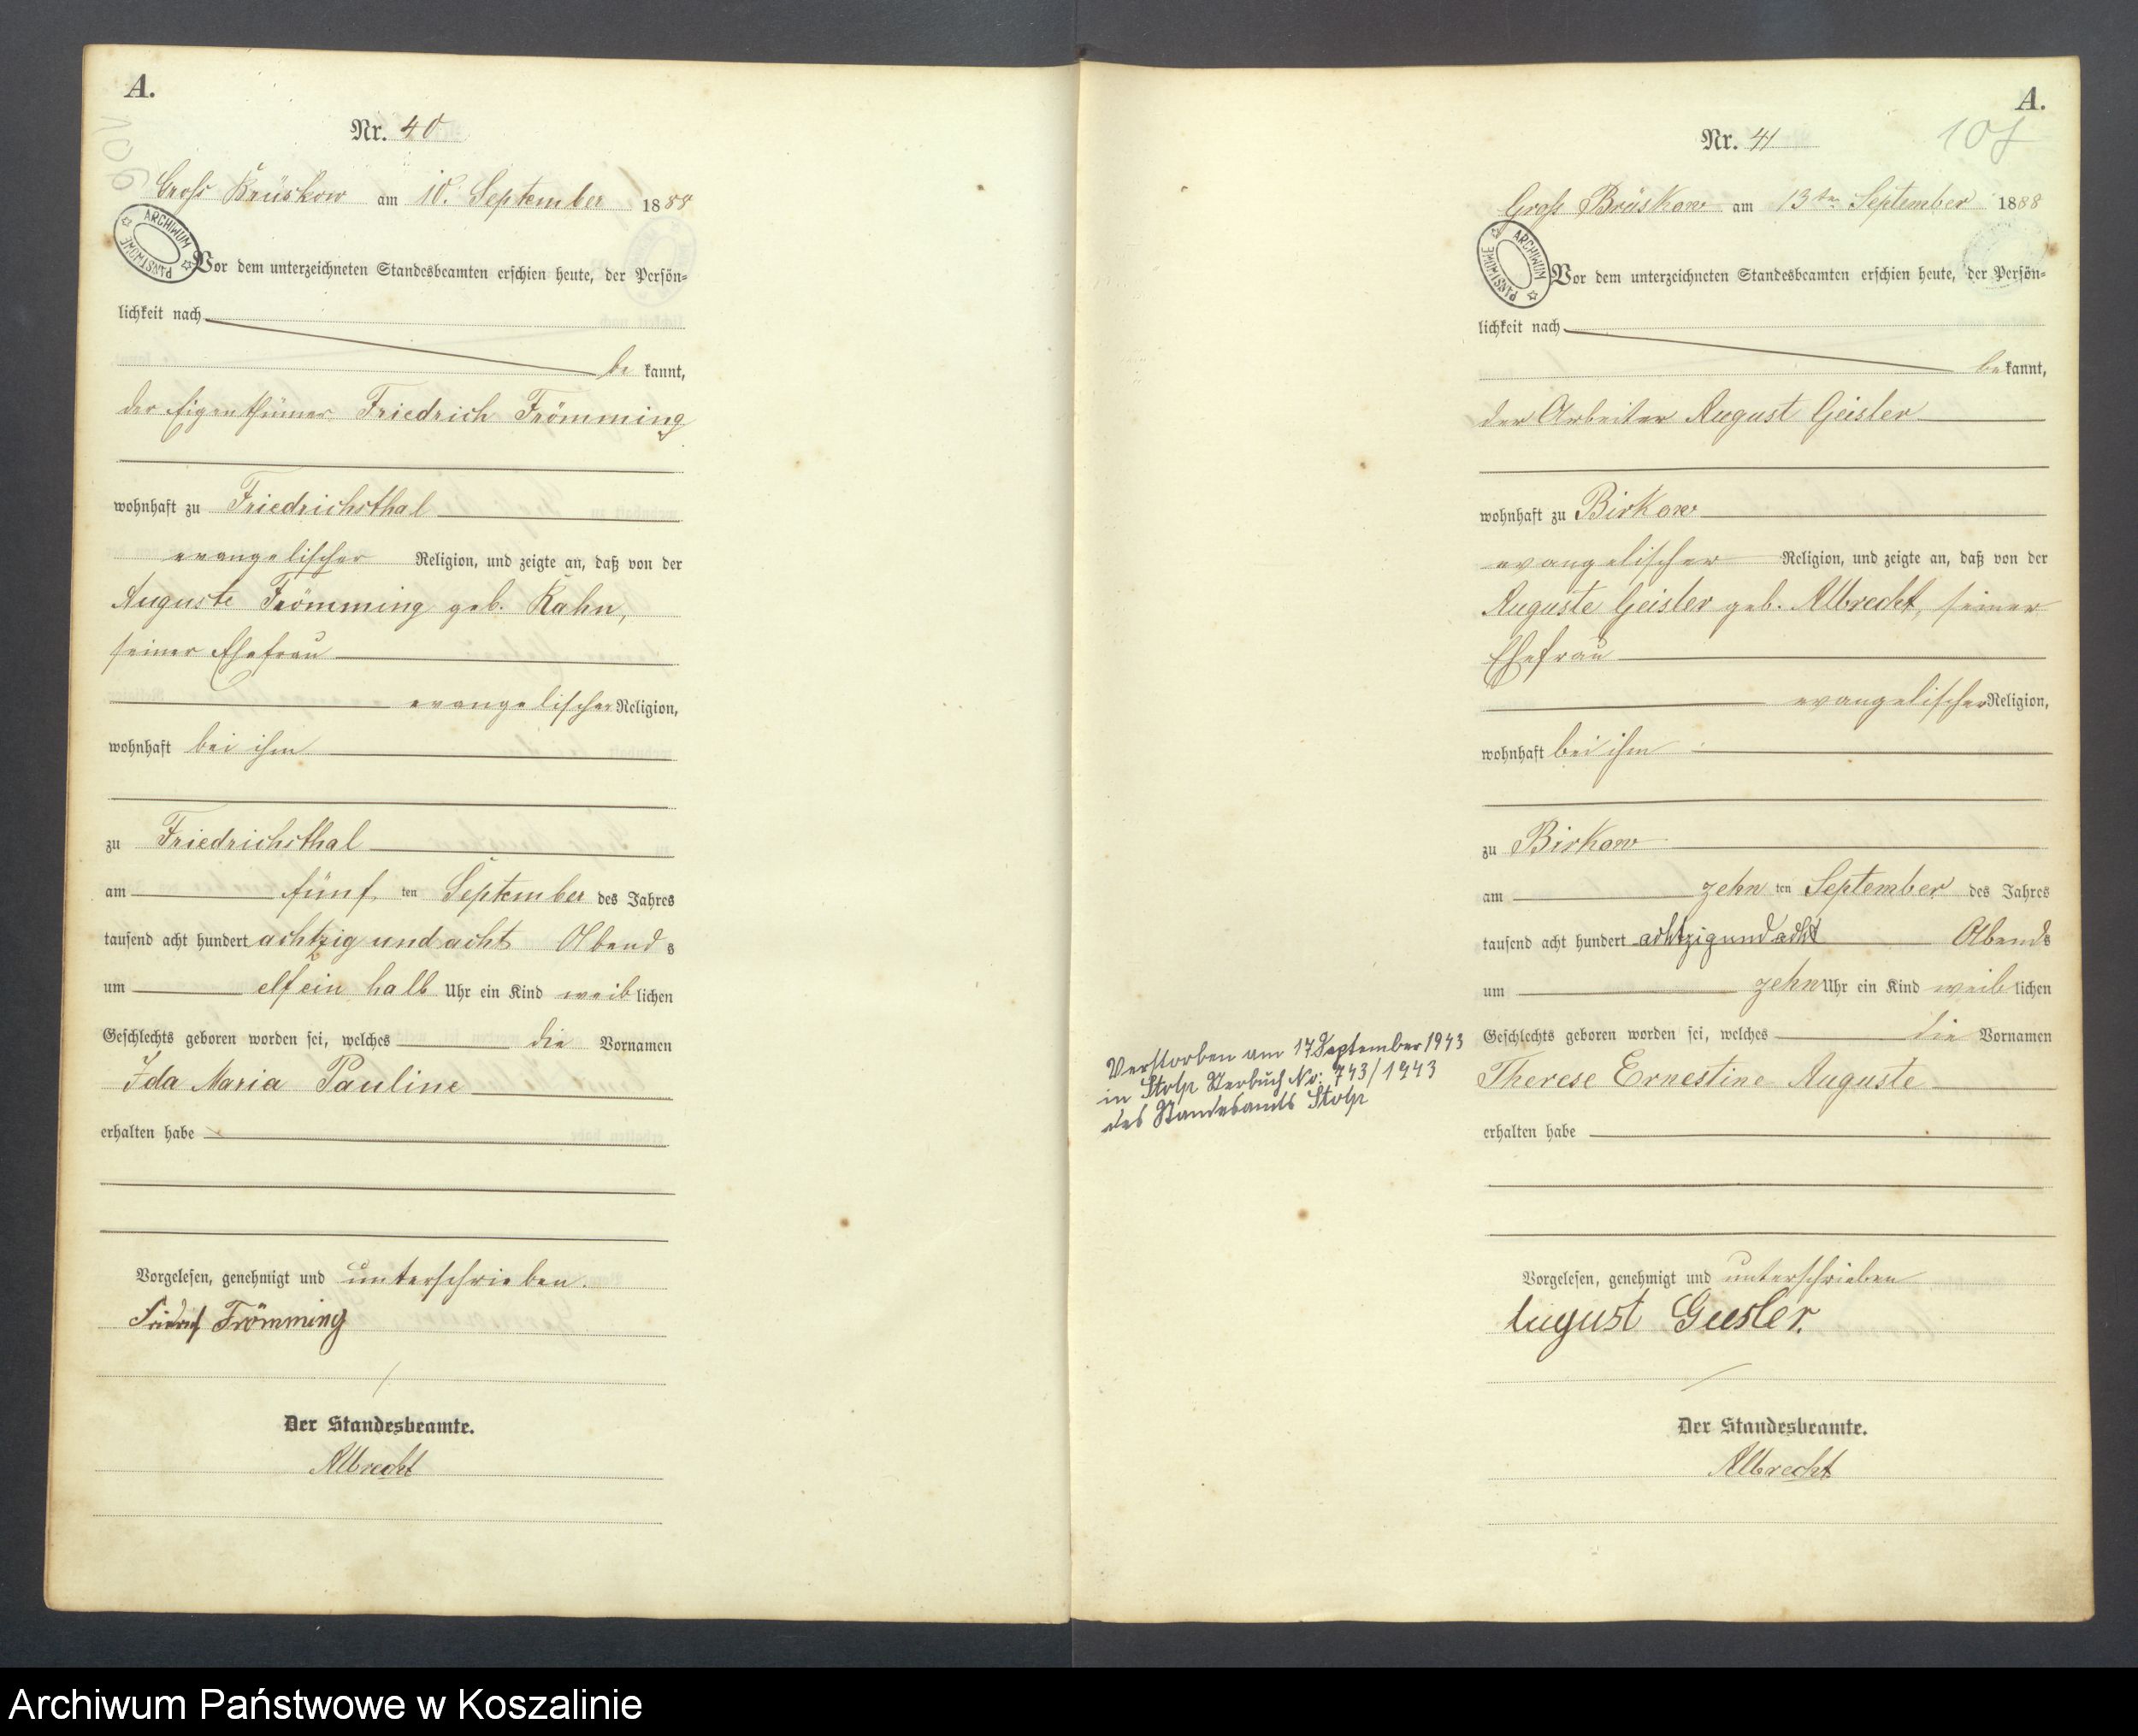 A.
106
Nr. 40
Groß Brüskow am 10. September 1888
ARCHIWUM PAŃSTWOWE
Vor dem unterzeichneten Standesbeamten erschien heute, der Persön=
lichkeit nach
be kannt,
der Eigenthümer Friedrich Frömming
wohnhaft zu Friedrichsthal
evangelischer Religion, und zeigte an, daß von der
Auguste Frömming geb. Kahn,
seiner Ehefrau
evangelischer Religion,
wohnhaft bei ihm
zu Friedrichsthal
am fünf ten September des Jahres
tausend acht hundert achtzig und acht Abend s
um elf ein halb Uhr ein Kind weib lichen
Geschlechts geboren worden sei, welches die Vornamen
Ida Maria Pauline
erhalten habe
Vorgelesen, genehmigt und unterschrieben.
Friedrich Frömming
Der Standesbeamte.
Albrecht
A.
107
Nr. 41
Groß Brüskow am 13ten September 1888
ARCHIWUM PAŃSTWOWE
Vor dem unterzeichneten Standesbeamten erschien heute, der Persön=
lichkeit nach
be kannt,
der Arbeiter August Geisler
wohnhaft zu Birkow
evangelischer Religion, und zeigte an, daß von der
Auguste Geisler geb. Albrecht, seiner
Ehefrau
evangelischer Religion,
wohnhaft bei ihm
zu Birkow
am zehn ten September des Jahres
tausend acht hundert achtzig und acht Abends
um zehn Uhr ein Kind weib lichen
Geschlechts geboren worden sei, welches die Vornamen
Therese Ernestine Auguste
erhalten habe
Verstorben am 17 September 1943
in Stolp Sterbuch No: 743/1943
des Standesamts Stolp
Vorgelesen, genehmigt und unterschrieben
August Geisler.
Der Standesbeamte.
Albrecht
Archiwum Państwowe w Koszalinie